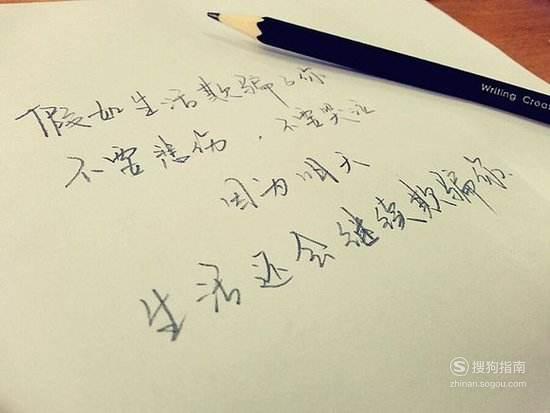 Writing Crea
假如生活欺骗了你
不要悲伤，不要哭泣
因为明天
生活还会继续欺骗你
搜狗指南
zhinan.sogou.com